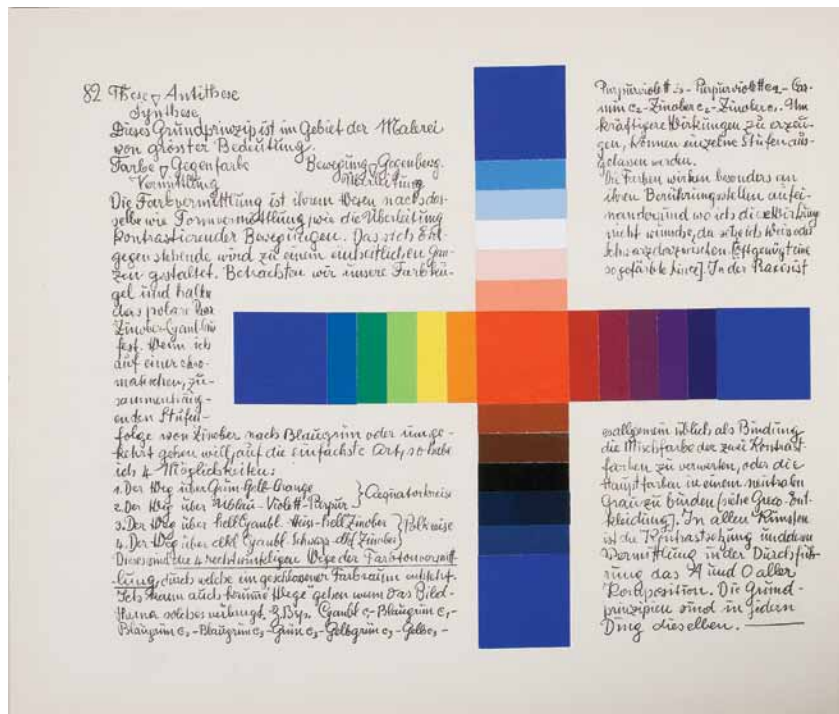 82 These ▽ Antithese
Synthese
Dieses Grundprinzip ist im Gebiet der Malerei
von grösster Bedeutung.
Farbe ▽ Gegenfarbe Bewegung ▽ Gegenbeweg.
Vermittlung
Die Farbvermittlung ist ihrem Wesen nach das-
selbe wie Formvermittlung wie die Überleitung
kontrastierender Bewegungen. Das sich Ent-
gegenstehende wird zu einem einheitlichen Gan-
zen gestaltet. Betrachten wir unsere Farbku-
gel und halten
das polare
Zinober-Cyanblau
fest. Wenn ich
auf einer chro-
matischen, zu-
sammenhäng-
enden Stufen-
folge von Zinober nach Blaugrün oder umge-
kehrt gehen will, auf die einfachste Art, so habe
ich 4 Möglichkeiten:
1. Der Weg über Grün-Gelb-Orange
2. Der Weg über Ublau-Violett-Purpur } Aequatorkreise
3. Der Weg über hell Cyanbl.-Weiss-hell Zinober } Polkreise
4. Der Weg über dkl Cyanbl-Schwarz-dkl Zinober
Dieses sind die 4 rechtwinkligen Wege der Farbtonvermitt-
lung, durch welche ein geschlossener Farbraum entsteht.
Ich kann auch krumme Wege gehen wenn das Bild-
thema solches verlangt. z. Bsp. Cyanbl -Blaugrün
Blaugrün -Blaugrün -Grün -Gelbgrün -Gelb
Purpurviolett -Purpurviolett -Car-
min c₂-Zinober c₂-Zinober c₁. Um
kräftigere Wirkungen zu erzeu-
gen, können einzelne Stufen aus-
gelassen werden.
Die Farben wirken besonders an
ihren Berührungsstellen aufei-
nander und wo ich diese Wirkung
nicht wünsche, da setze ich Weiss oder
Schwarz dazwischen [oft genügt eine
so gefärbte Linie]. In der Praxis ist
es allgemein üblich als Bindung
die Mischfarbe der zwei Kontrast-
farben zu verwerten, oder die
Hauptfarben in einem neutralen
Grau zu binden [siehe Greco-Ent-
kleidung]. In allen Künsten
ist die Kontrastsetzung und deren
Vermittlung in der Durchfüh-
rung das A und O aller
Komposition. Die Grund-
prinzipien sind in jedem
Ding dieselben.